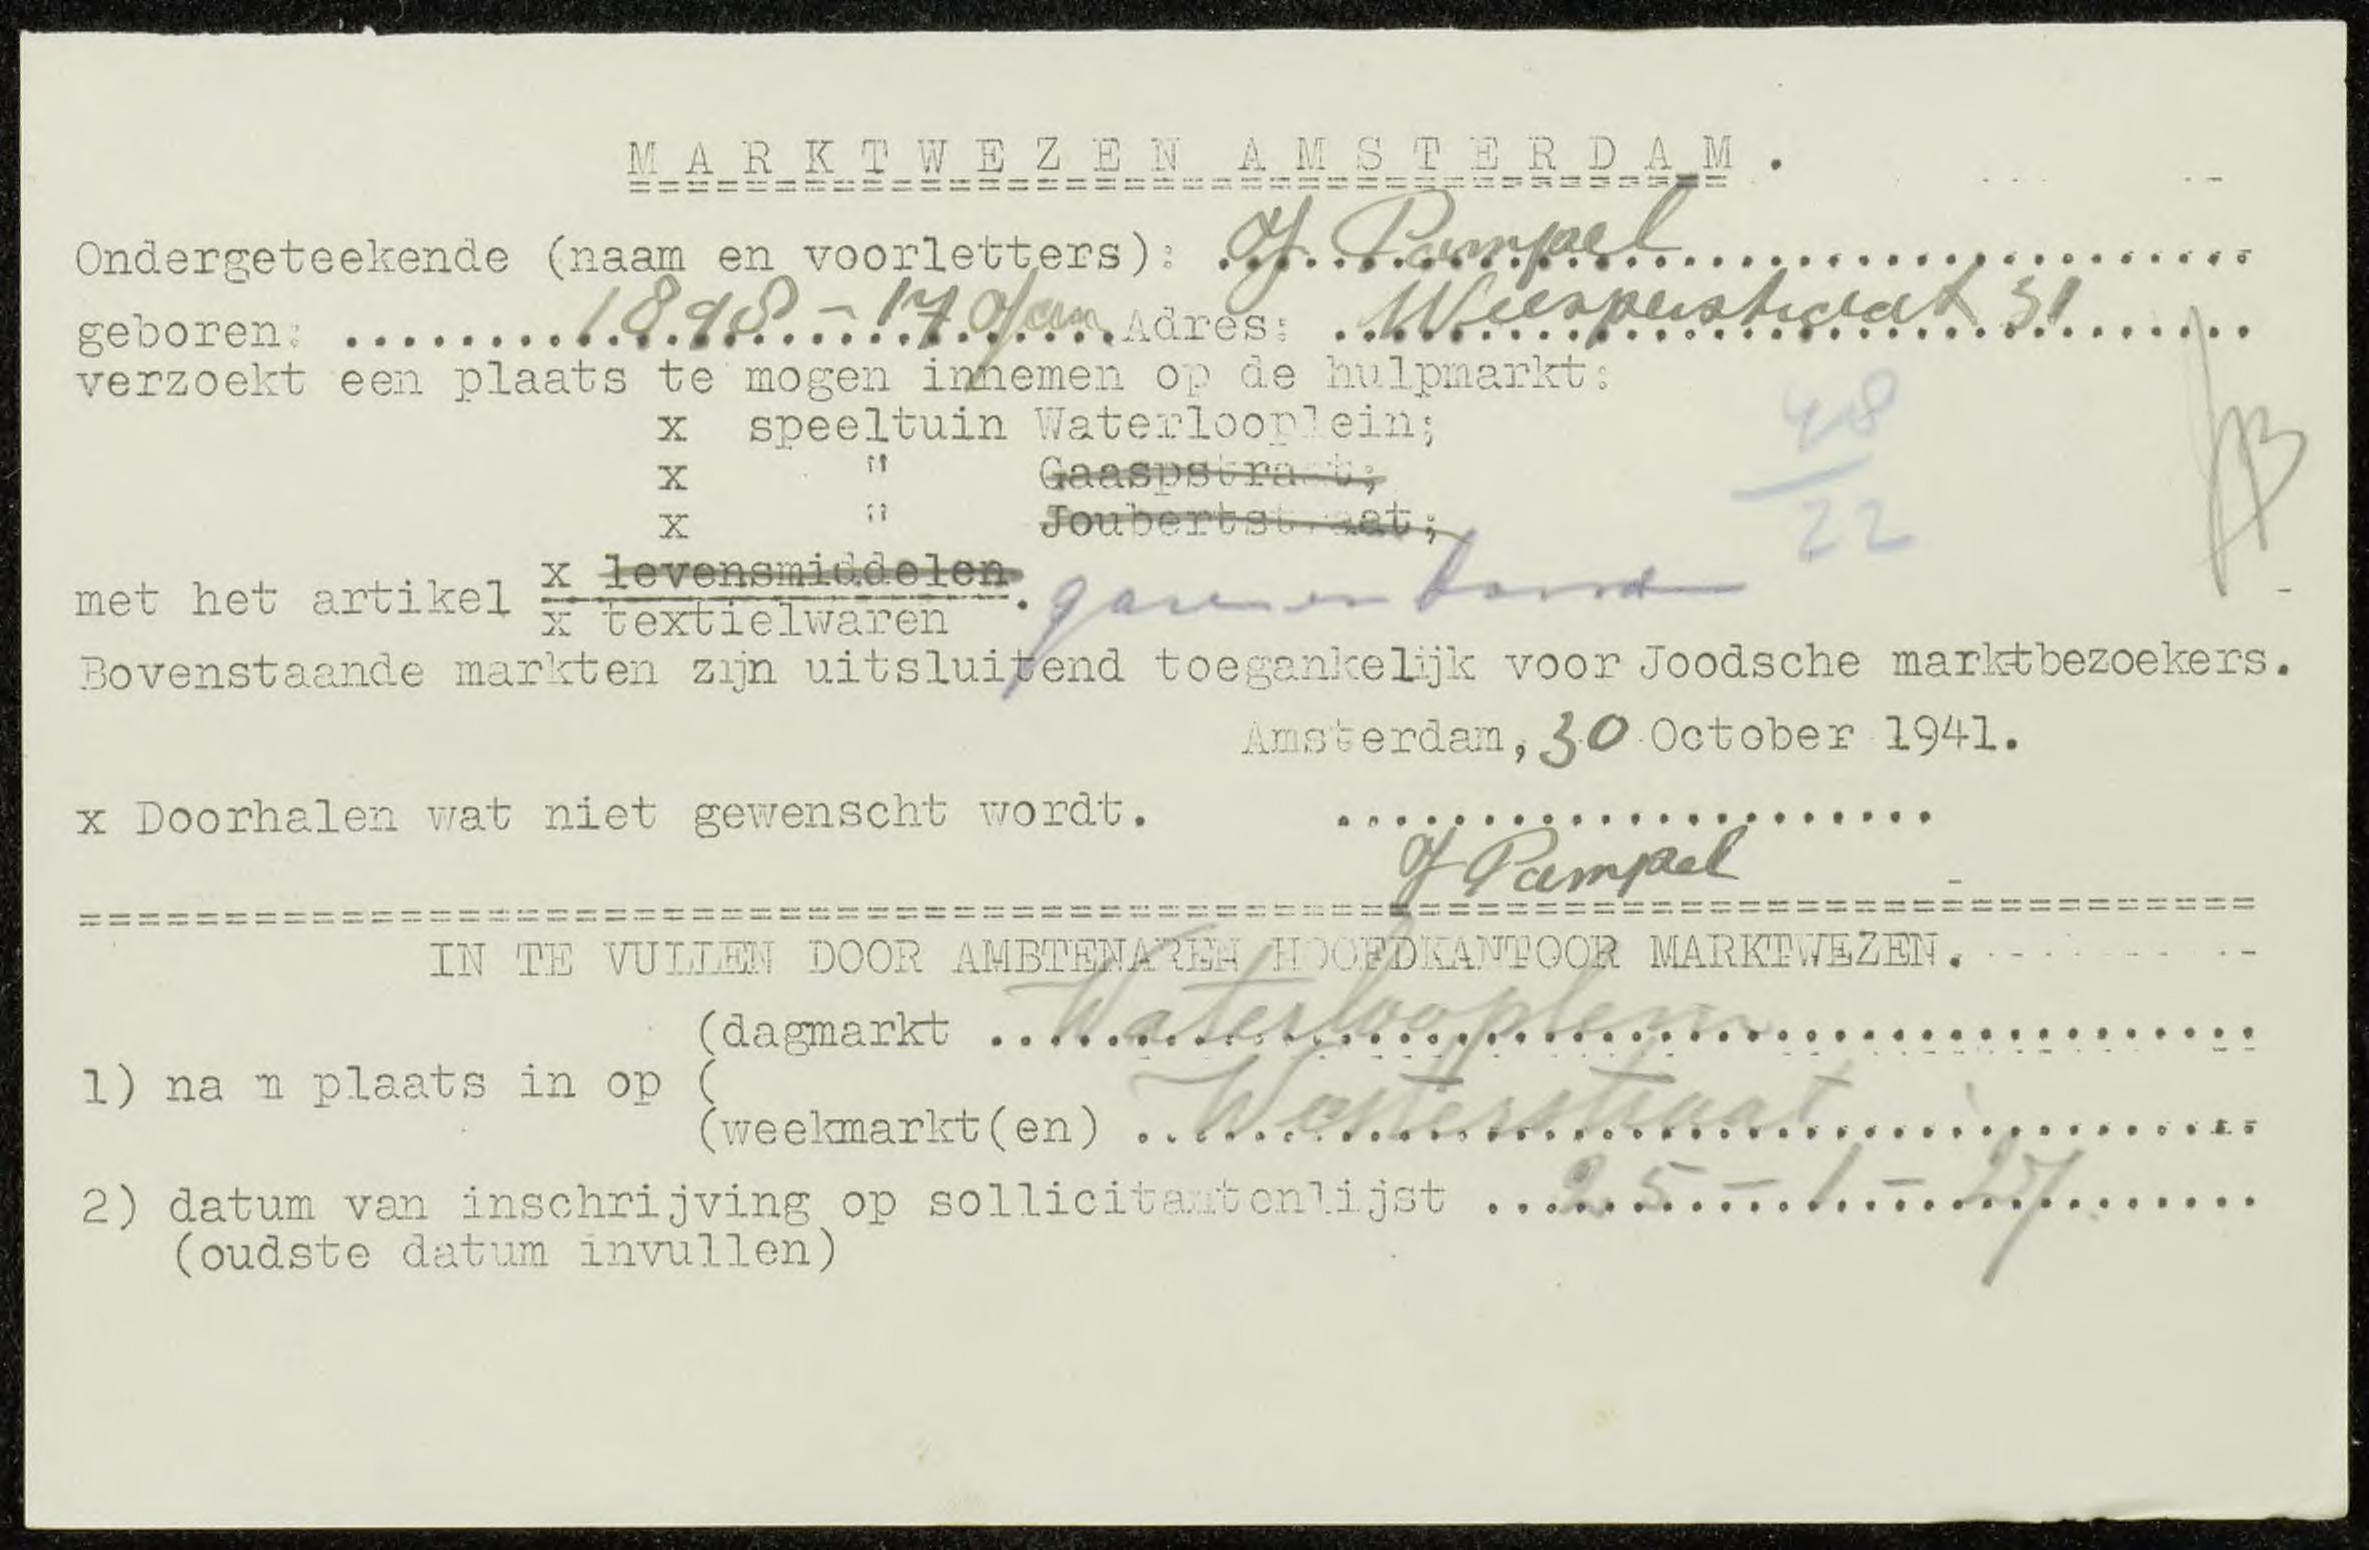 MARKTWEZEN AMSTERDAM.
Ondergeteekende (naam en voorletters): J Pampel
geboren: 1898-17 Jan Adres: Weesperstraat 31
verzoekt een plaats te mogen innemen op de hulpmarkt:
x speeltuin Waterlooplein;
x " Gaaspstraat;
x " Joubertstraat;
48
22
met het artikel x levensmiddelen.
x textielwaren garen en band
Bovenstaande markten zijn uitsluitend toegankelijk voor Joodsche marktbezoekers.
Amsterdam, 30 October 1941.
x Doorhalen wat niet gewenscht wordt.
J Pampel
IN TE VULLEN DOOR AMBTENAREN HOOFDKANTOOR MARKTWEZEN.
(dagmarkt Waterlooplein
1) na m plaats in op (
(weekmarkt(en) Westerstraat
2) datum van inschrijving op sollicitantenlijst 25-1-27
(oudste datum invullen)